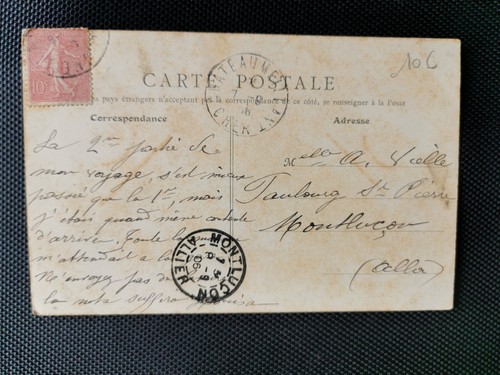 10 C
CARTE POSTALE
pays étrangers n'acceptent pas la correspondance de ce côté, se renseigner à la Poste
Correspondance
Adresse
CHATEAUMEILLANT
CHER
La 2me partie de
mon voyage s'est mieux
passé que la 1re, mais
j'étais quand même contente
d'arriver. Toute la
m'attendait à la
N'envoyez pas de
la note suffira
Melle A. Vieille
Faubourg St Pierre
Montluçon
(Allier)
MONTLUÇON
ALLIER
10